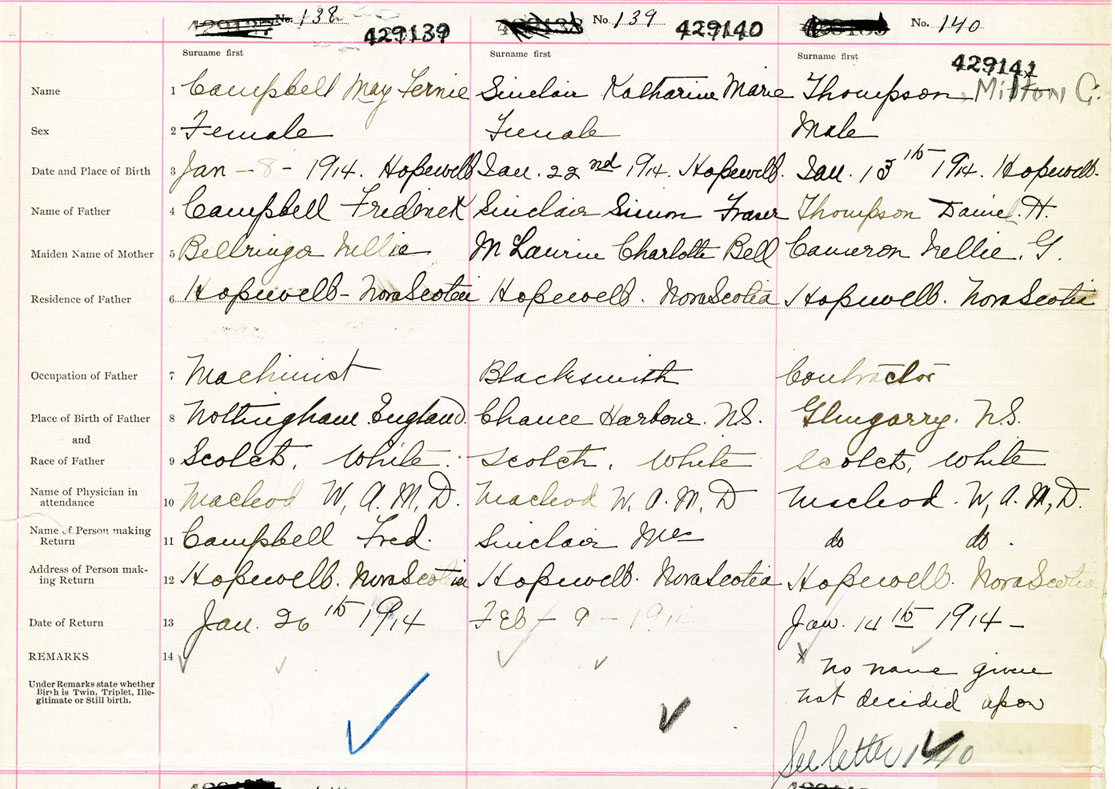 No. 138 No. 139 No. 140
429139 429140 429141
Surname first Surname first Surname first
Name 1 Campbell May Fernie Sinclair Katharine Marie Thompson Milton G.
Sex 2 Female Female Male
Date and Place of Birth 3 Jan - 8 - 1914. Hopewell Jan. 22nd 1914. Hopewell. Jan. 13th 1914. Hopewell.
Name of Father 4 Campbell Frederick Sinclair Simon Fraser Thompson Daniel H.
Maiden Name of Mother 5 Bellringer Nellie McLaurin Charlotte Bell Cameron Nellie. G.
Residence of Father 6 Hopewell - Nova Scotia Hopewell. Nova Scotia Hopewell. Nova Scotia
Occupation of Father 7 Machinist Blacksmith Contractor
Place of Birth of Father 8 Nottingham England. Chance Harbour. N.S. Glengarry. N.S.
and
Race of Father 9 Scotch, White. Scotch, White Scotch, White
Name of Physician in
attendance 10 Macleod W, A. M, D. Macleod W, A. M, D Macleod. W, A. M, D.
Name of Person making
Return 11 Campbell Fred. Sinclair Mrs do do.
Address of Person mak-
ing Return 12 Hopewell. Nova Scotia Hopewell. Nova Scotia Hopewell. Nova Scotia
Date of Return 13 Jan. 26th 1914 Feb - 9 - 1914 Jan. 14th 1914 -
REMARKS 14
Under Remarks state whether
Birth is Twin, Triplet, Ille-
gitimate or Still birth.
* No name given
not decided upon
See letter 140